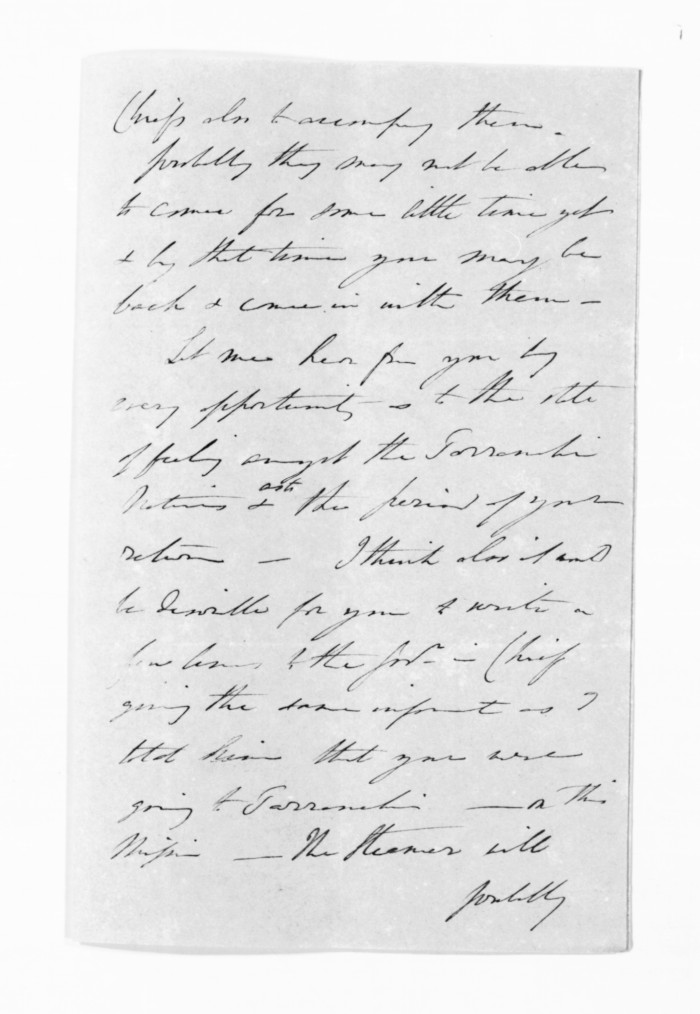 Chiefs also to accompany them -
probably they may not be able
to come for some little time yet
& by that time you may be
back & come in with them -
Let me hear from you by
every opportunity as to the state
of feeling amongst the Tarranaki
Natives & as to the period of your
return — I think also it would
be desirable for you to write a
few lines to the Govr in Chief
giving the same informt as I
told him that you were
going to Tarranaki — on this
Mission — The Steamer will
probably